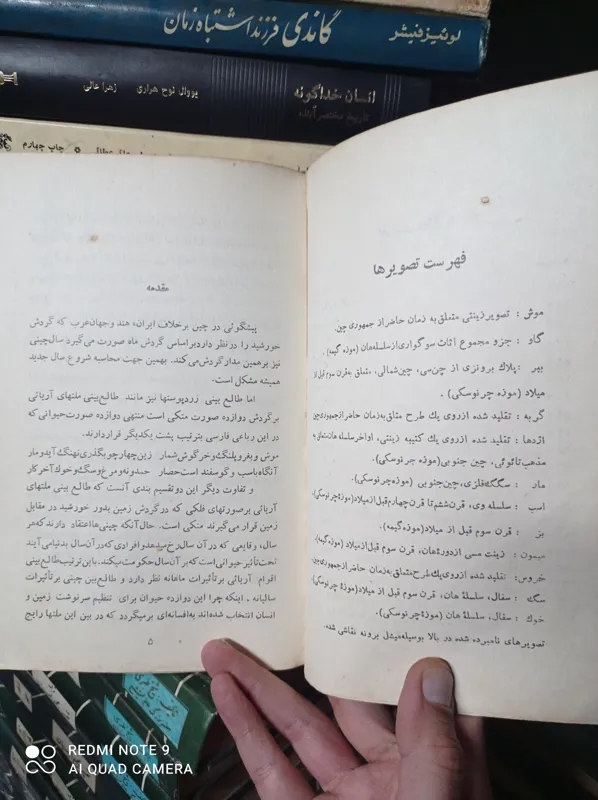 لوئیز فیشر
گاندی فرزند اشتباه زمان
انسان خداگونه
تاریخ مختصر آینده
یووال نوح هراری
زهرا عالی
چاپ چهارم
فهرست تصویرها
موش : تصویر زینتی متعلق به زمان حاضر از جمهوری چین.
گاو : جزو مجموع اثاث سوگواری از سلسله هان (موزه گیمه).
ببر : پلاك برونزی از چن‌سی، چین‌شمالی، متعلق به قرن سوم قبل از
میلاد (موزه چرنوسکی).
گربه : تقلید شده از روی یك طرح متعلق به زمان حاضر از جمهوری چین
اژدها : تقلید شده از روی یك کتیبه زینتی، اواخر سلسله هان متعلق به
مذهب تائوئی، چین جنوبی (موزه چرنوسکی)
مار : سگك فلزی، چین جنوبی (موزه چرنوسکی)
اسب : سلسله وی، قرن ششم تا قرن چهارم قبل از میلاد (موزه چرنوسکی).
بز : قرن سوم قبل از میلاد (موزه گیمه).
میمون : زینت مسی از دوره هان، قرن سوم قبل از میلاد (موزه گیمه).
خروس: تقلید شده از روی یك طرح متعلق به زمان حاضر از جمهوری چین
سگ : سفال، سلسله هان، قرن سوم قبل از میلاد (موزه چرنوسکی).
خوك : سفال، سلسله هان (موزه چرنوسکی).
تصویرهای نامبرده شده در بالا بوسیله میشل برونه نقاشی شده.
مقدمه
پیشگوئی در چین برخلاف ایران، هند و جهان عرب که گردش
خورشید را در نظر دارد براساس گردش ماه صورت می‌گیرد سال چینی
نیز برهمین مدار گردش می‌کند. بهمین جهت محاسبه شروع سال جدید
همیشه مشکل است.
اما طالع بینی زردپوستها نیز مانند طالع‌بینی ملتهای آریائی
برگردش دوازده صورت متکی است منتهی دوازده صورت حیوانی که
در این رباعی فارسی بترتیب پشت یکدیگر قرار دارند.
موش و بقر و پلنگ و خرگوش شمار زین چار چو بگذری نهنگ آید و مار
آنگاه باسب و گوسفند است حصار حمدونه و مرغ و سگ و خوك آخر کار
و تفاوت دیگر این دو تقسیم بندی آنست که طالع بینی ملتهای
آریائی برصورتهای فلکی که در گردش زمین بدور خورشید در مقابل
زمین قرار می‌گیرند متکی است. حال آنکه چینی‌ها اعتقاد دارند که هر
سال، وقایعی که در آن سال رخ میدهد و افرادی که در آن سال بدنیا می‌آیند
تحت تأثیر حیوانی است که بر آن سال حکومت میکند. باین ترتیب طالع بینی
اقوام آریائی بر تأثیرات ماهانه نظر دارد و طالع بینی چینی بر تأثیرات
سالیانه . اینکه چرا این دوازده حیوان برای تنظیم سرنوشت زمین و
انسان انتخاب شده‌اند به افسانه‌ای برمیگردد که در بین این ملتها رایج
۵
REDMI NOTE 9
AI QUAD CAMERA